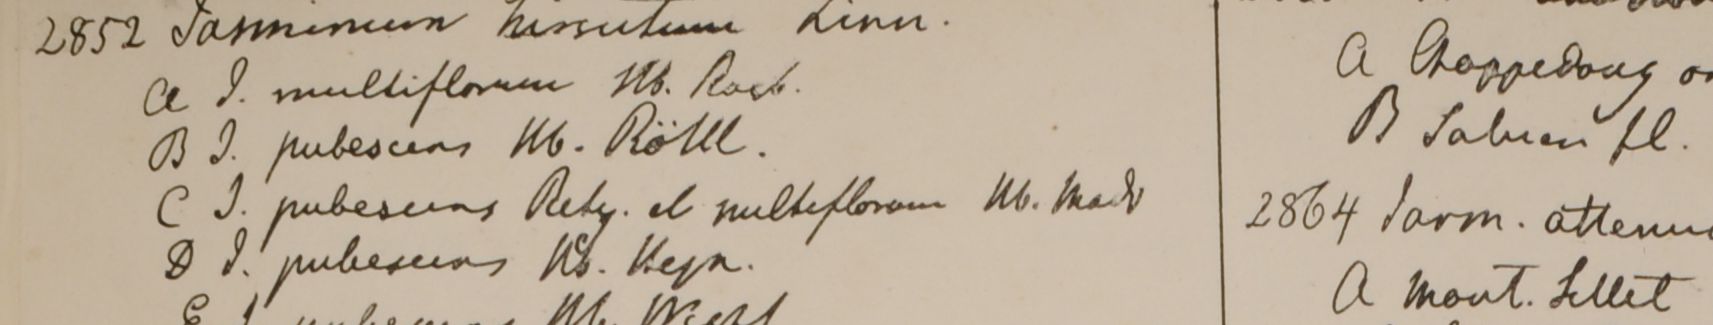 2852 Jasminum hirsutum Linn.
a J. multiflorum Hb. Roxb.
B J. pubescens Hb. Röttl.
C J. pubescens Retz. et multiflorum Hb. Madr
D J. pubescens Hb. Heyn.
E J. pubescens Hb. Wight
a Choppedong
B Salueen fl.
2864 Jasm. attenu
a Mont. Sillet